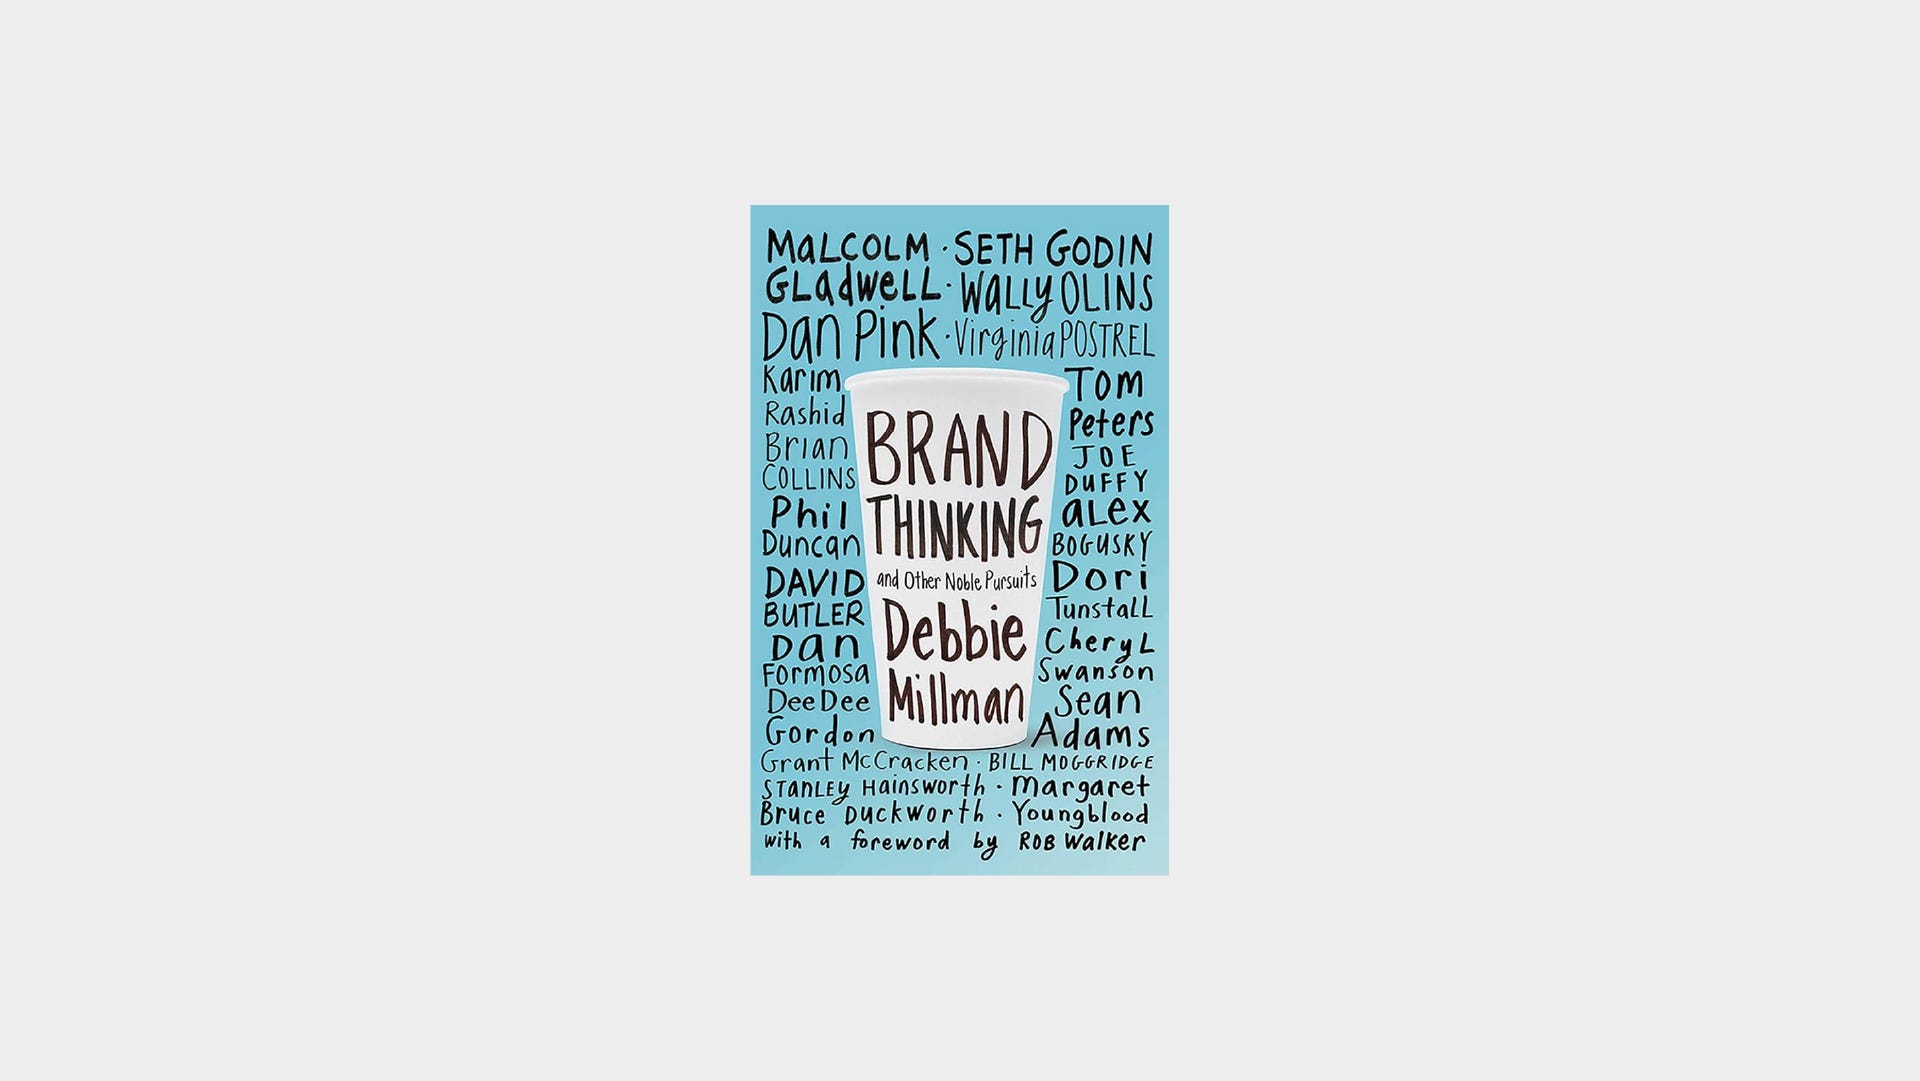 MaLCOLM · SETH GODIN
GLadweLL · WaLLy OLINS
Dan Pink · Virginia POSTREL
Karim
Rashid
Brian
COLLINS
Phil
Duncan
DAVID
BUTLER
Dan
Formosa
DeeDee
Gordon
BRAND
THINKING
and Other Noble Pursuits
Debbie
Millman
Tom
Peters
JOE
DUFFY
aLex
BOGUSKY
Dori
TunstaLL
CheryL
Swanson
Sean
Adams
Grant McCracken · BILL MOGGRIDGE
STANLEy Hainsworth · Margaret
Bruce Duckworth · Youngblood
with a foreword by ROB Walker